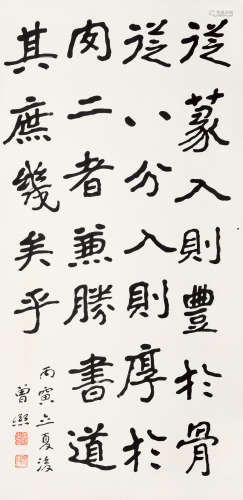 從篆入則豐於骨
從八分入則厚於
肉二者兼勝書道
其庶幾矣乎
丙寅立夏後
曾熙